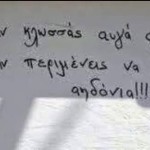 ν κλωσσάς αυγά
ν περιμένεις να
αηδόνια!!!